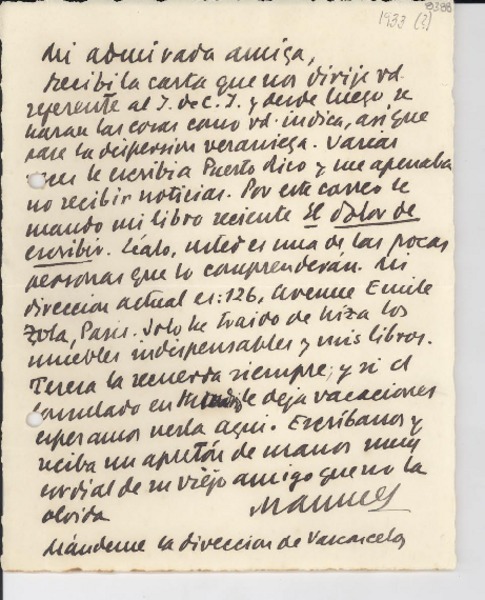 8388
1933 (?)
Mi admirada amiga,
Recibí la carta que nos dirije vd.
referente al I. de C. I. y desde luego se
haran las cosas como vd. indica, así que
pase la dispersión veraniega. Varias
veces le escribí a Puerto Rico y me apenaba
no recibir noticias. Por este correo le
mando mi libro reciente El dolor de
escribir. Léalo, usted es una de las pocas
personas que lo comprenderán. Mi
direccion actual es: 126, Avenue Emile
Zola, Paris. Solo he traido de Niza los
muebles indispensables y mis libros.
Teresa la recuerda siempre; y si el
Consulado en le deja vacaciones
esperamos verla aqui. Escríbanos y
reciba un apretón de manos muy
cordial de su viejo amigo que no la
olvida
Manuel
Mándeme la direccion de Vasconcelos